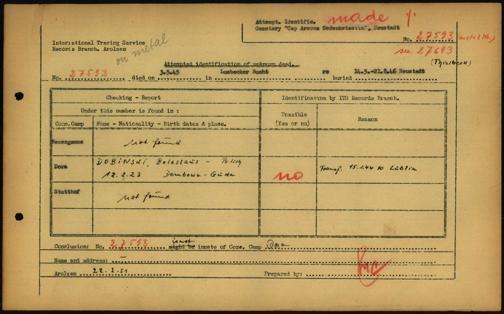 Attempt. Identific. made
Cemetery "Cap Arcona Gedenkstein", Neustadt
No. 27593
International Tracing Service
Records Branch, Arolsen
on metal
see 27643
Attempted identification of unknown dead.
No. 27593 died on 3.5.45 in Luebecker Bucht re buried 14.3.-21.8.46 Neustadt
Checking - Report
Identification by ITS Records Branch.
Under this number is found in :
Conc.Camp
Name - Nationality - Birth dates & place.
Possible
(Yes or no)
Reason
Neuengamme
not found
Dora
DOBINSKI, Boleslaus - Polish
12.2.23
no
Transf. 15.1.44 to Lublin
Stutthof
not found
Conclusion: No. 27593 might be inmate of Conc. Camp Dora
Name and address:
Arolsen 22.2.51
Prepared by: